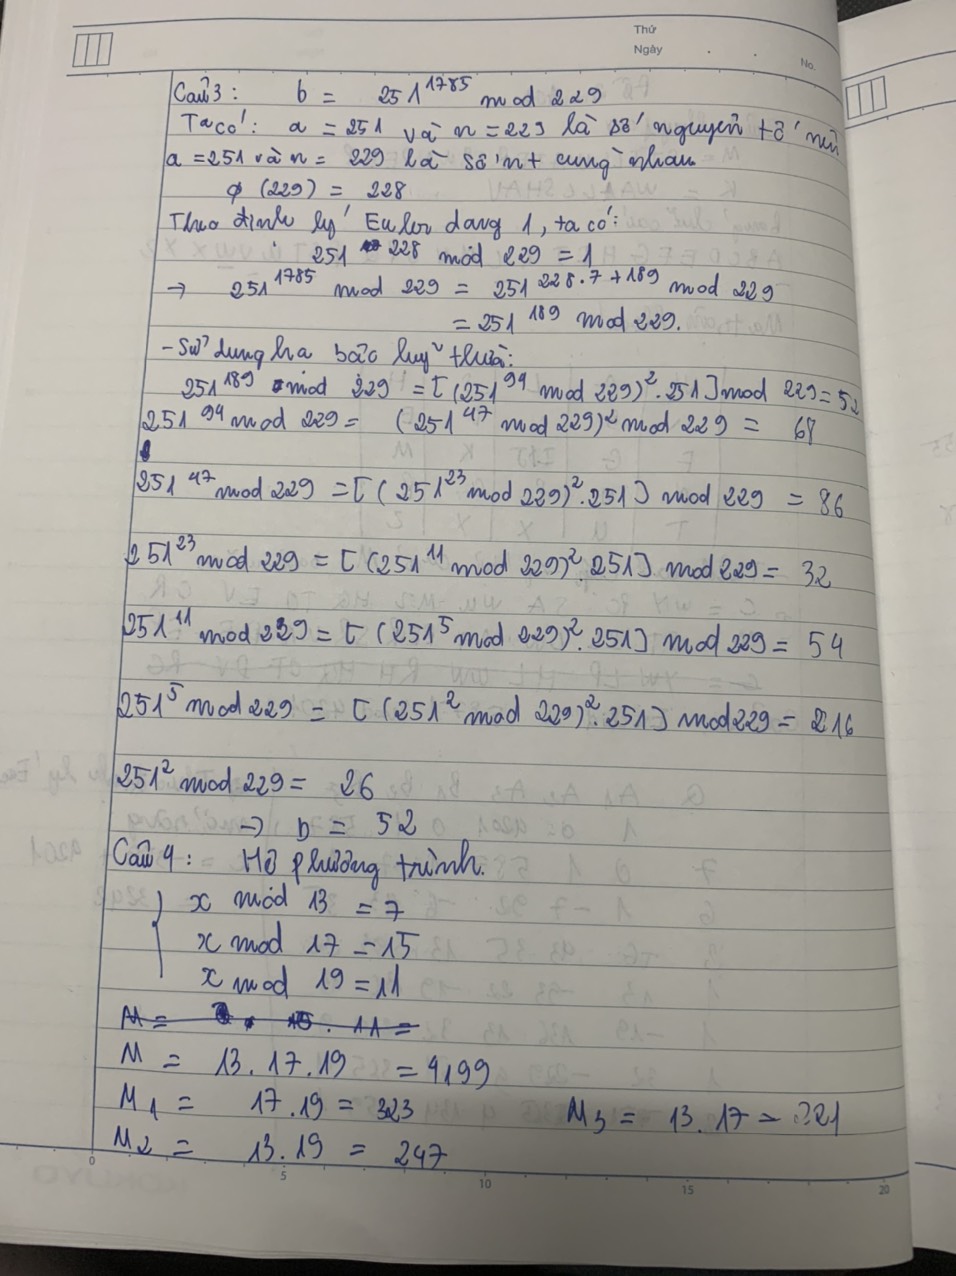 Thứ
Ngày
No.
Câu 3: b = 251^1785 mod 229
Ta có: a = 251 và n = 229 là số nguyên tố nên
a = 251 và n = 229 là số nt cùng nhau
φ(229) = 228
Theo định lý Euler dạng 1, ta có:
251^228 mod 229 = 1
→ 251^1785 mod 229 = 251^228.7+189 mod 229
= 251^189 mod 229.
- Sử dụng hạ bậc luỹ thừa:
251^189 mod 229 = [(251^94 mod 229)^2 . 251] mod 229 = 52
251^94 mod 229 = (251^47 mod 229)^2 mod 229 = 68
251^47 mod 229 = [(251^23 mod 229)^2 . 251] mod 229 = 86
251^23 mod 229 = [(251^11 mod 229)^2 . 251] mod 229 = 32
251^11 mod 229 = [(251^5 mod 229)^2 . 251] mod 229 = 54
251^5 mod 229 = [(251^2 mod 229)^2 . 251] mod 229 = 216
251^2 mod 229 = 26
→ b = 52
Câu 4: Hệ phương trình.
x mod 13 = 7
x mod 17 = 15
x mod 19 = 11
M = 13.17.19 = 4199
M1 = 17.19 = 323 M3 = 13.17 = 221
M2 = 13.19 = 247
0 5 10 15 20